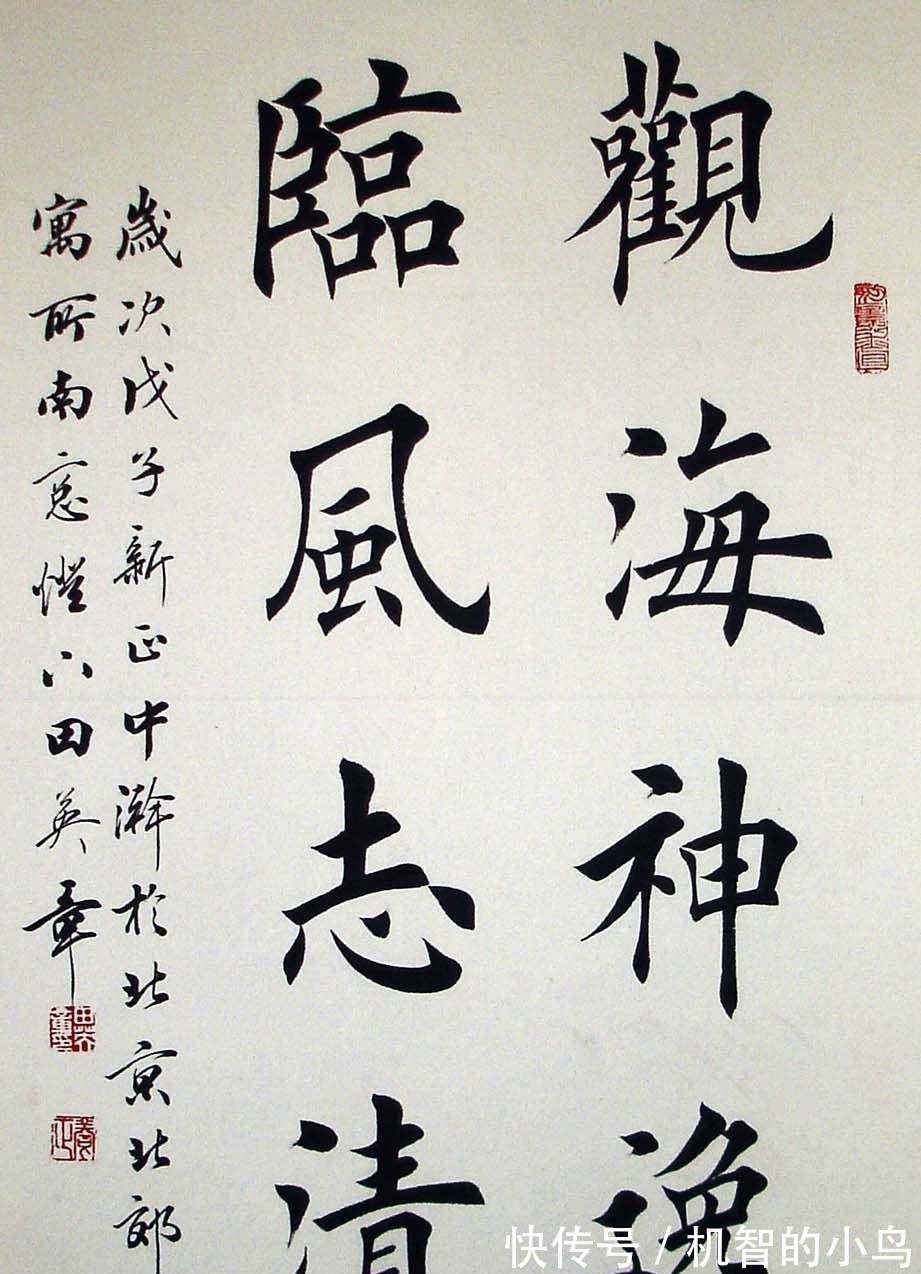 觀海神逸
臨風志清
歲次戊子新正中澣於北京北郊
寓所南窓燈下田英章
快传号 / 机智的小鸟